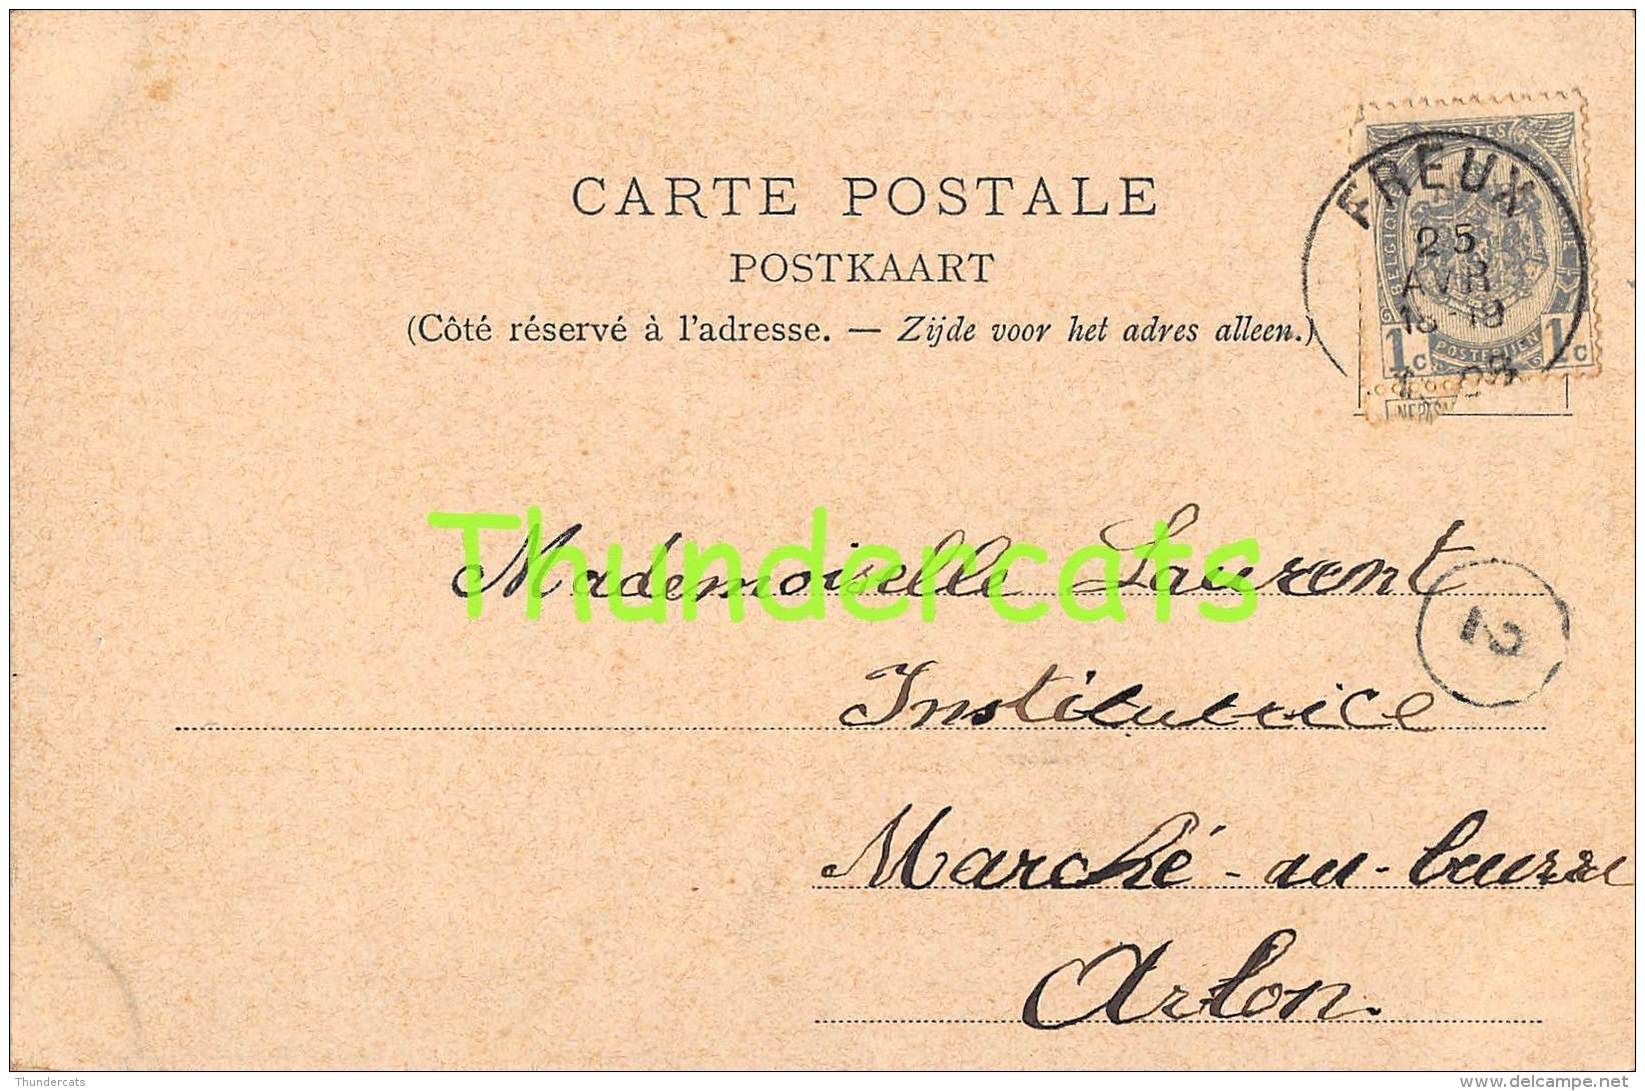 CARTE POSTALE
POSTKAART
(Côté réservé à l'adresse. — Zijde voor het adres alleen.)
FREUX
25
AVR
POSTES
BELGIQUE
1c 1c
Thundercats
Mademoiselle Laurent
2
Institutrice
Marché-au-beurre
Arlon.
Thundercats
delcampe.net